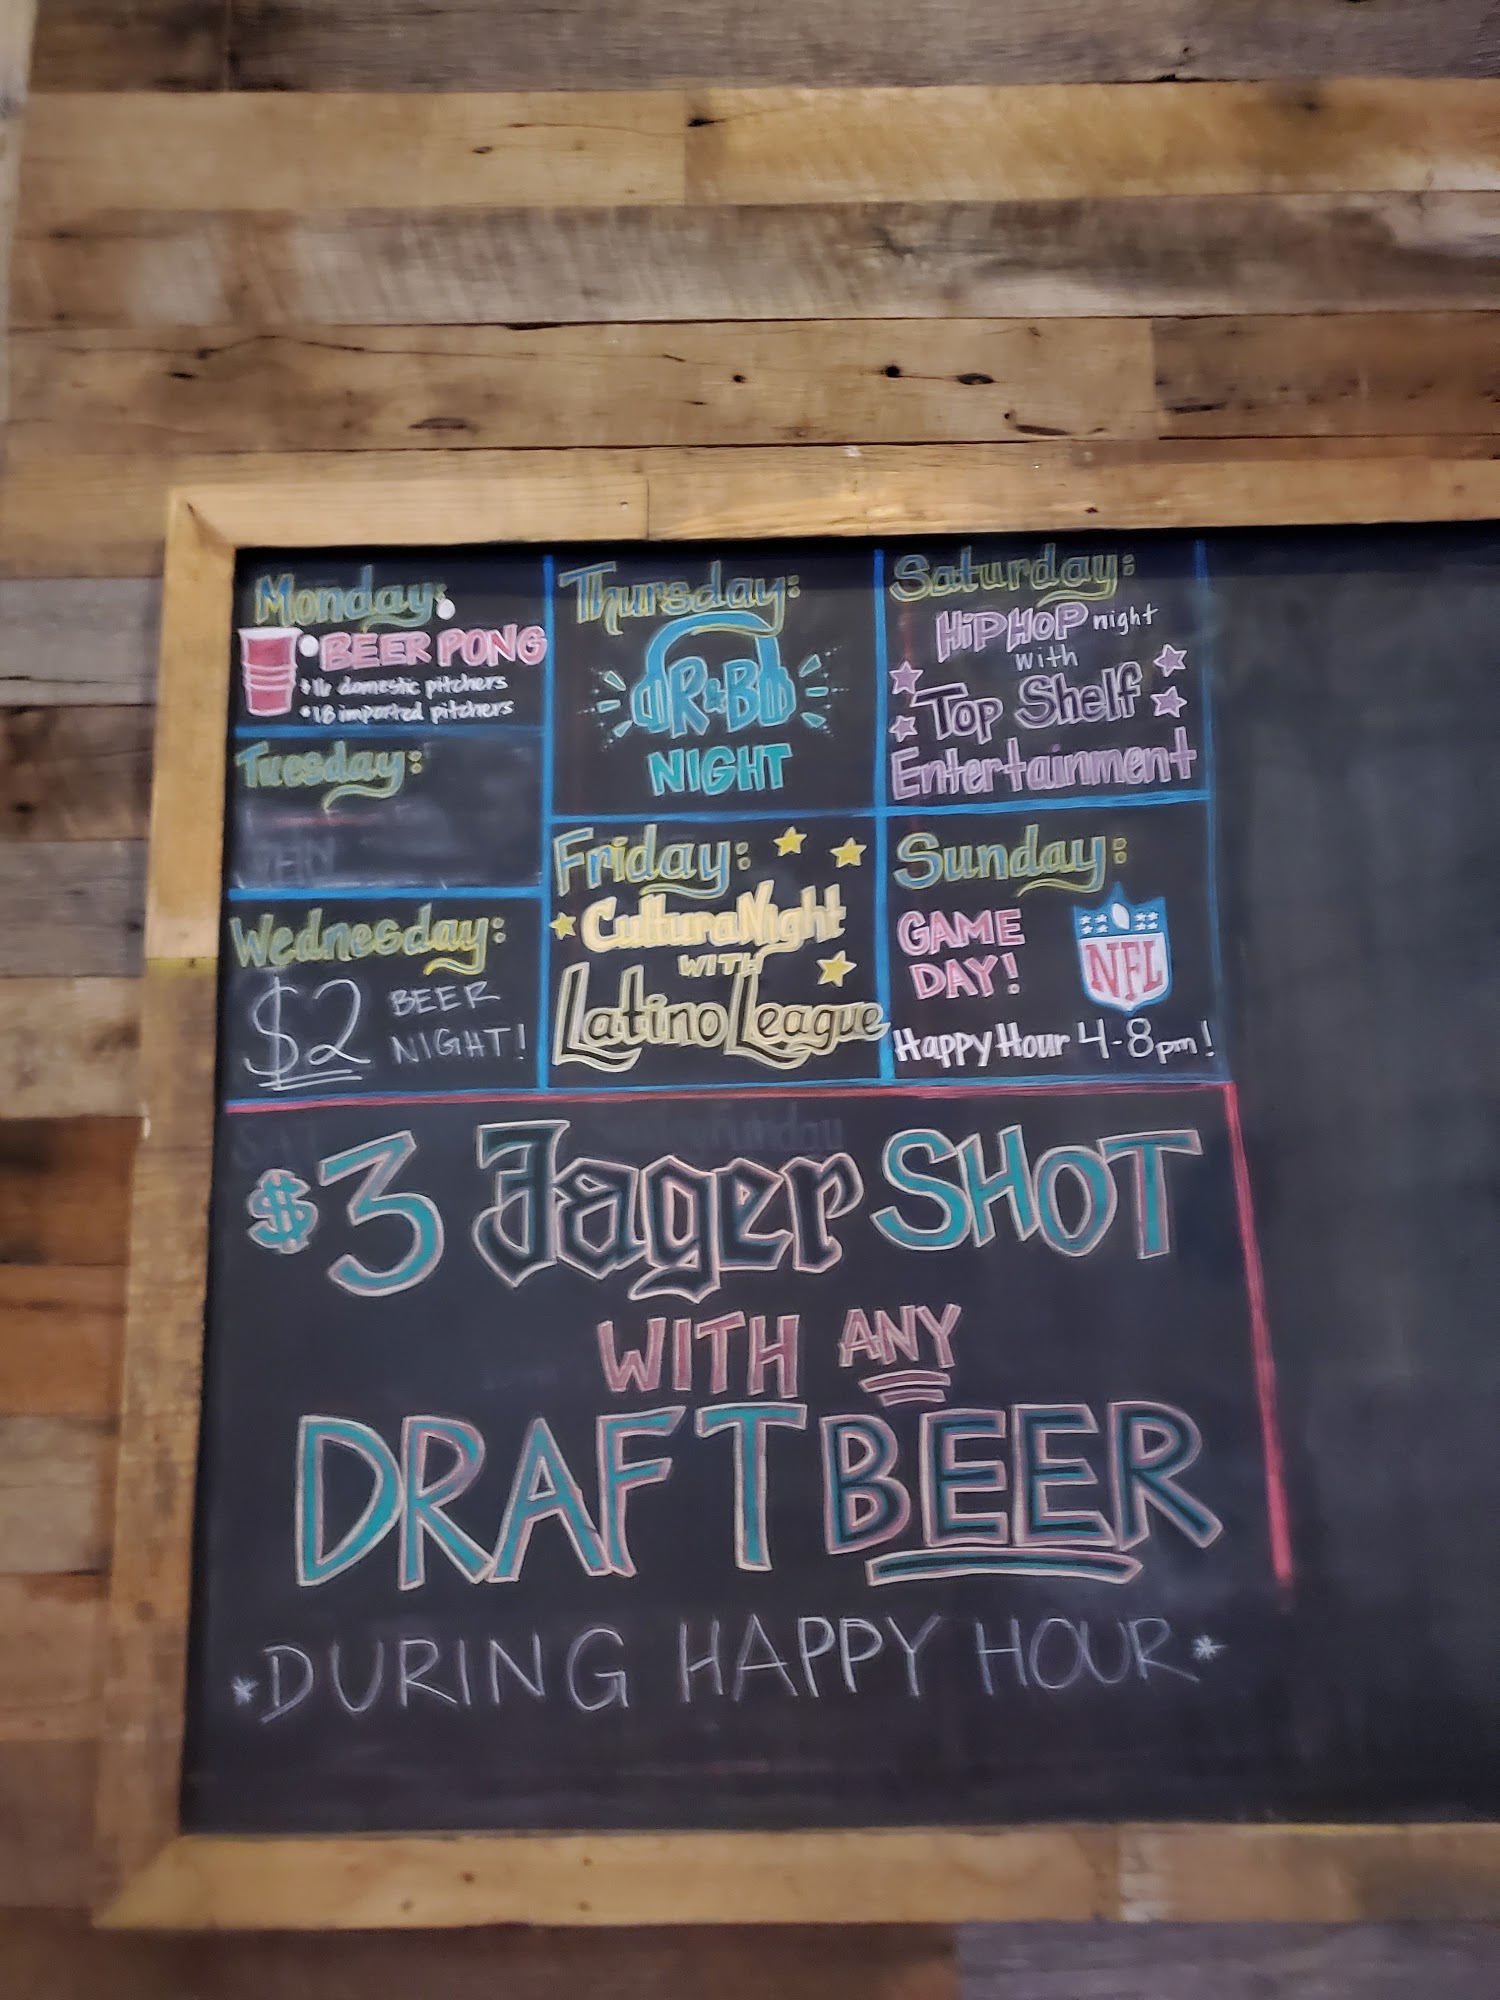 Monday:
BEER PONG
•16 domestic pitchers
•18 imported pitchers
Tuesday:
Wednesday:
$2 BEER
NIGHT!
Thursday:
R&B
NIGHT
Friday:
Cultura Night
WITH
Latino League
Saturday:
HipHop night
with
Top Shelf
Entertainment
Sunday:
GAME
DAY!
NFL
Happy Hour 4-8pm!
$3 Jager SHOT
WITH ANY
DRAFT BEER
*DURING HAPPY HOUR*